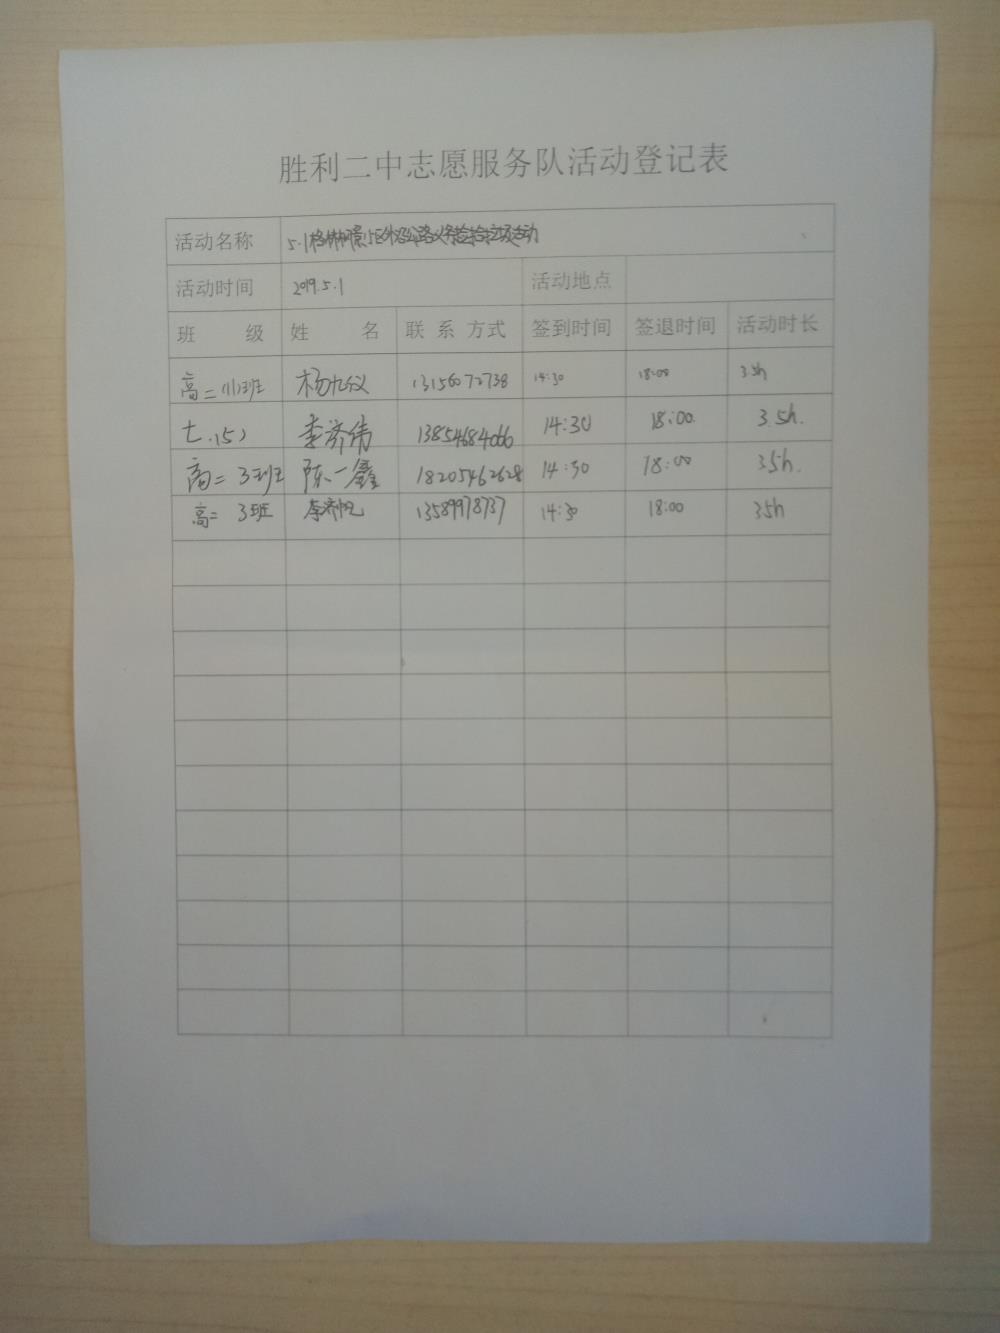 胜利二中志愿服务队活动登记表
活动名称 5.1格林小区外沿公路义务捡拾垃圾活动
活动时间 2019.5.1 活动地点
班 级 姓 名 联 系 方式 签到时间 签退时间 活动时长
高二(1)班 杨九仪 13156072738 14:30 18:00 3.5h
七.(5) 李济伟 13854684066 14:30 18:00. 3.5h.
高二 3班 陈一鑫 18205462628 14:30 18:00 3.5h.
高二 3班 李济帆 13589978737 14:30 18:00 3.5h